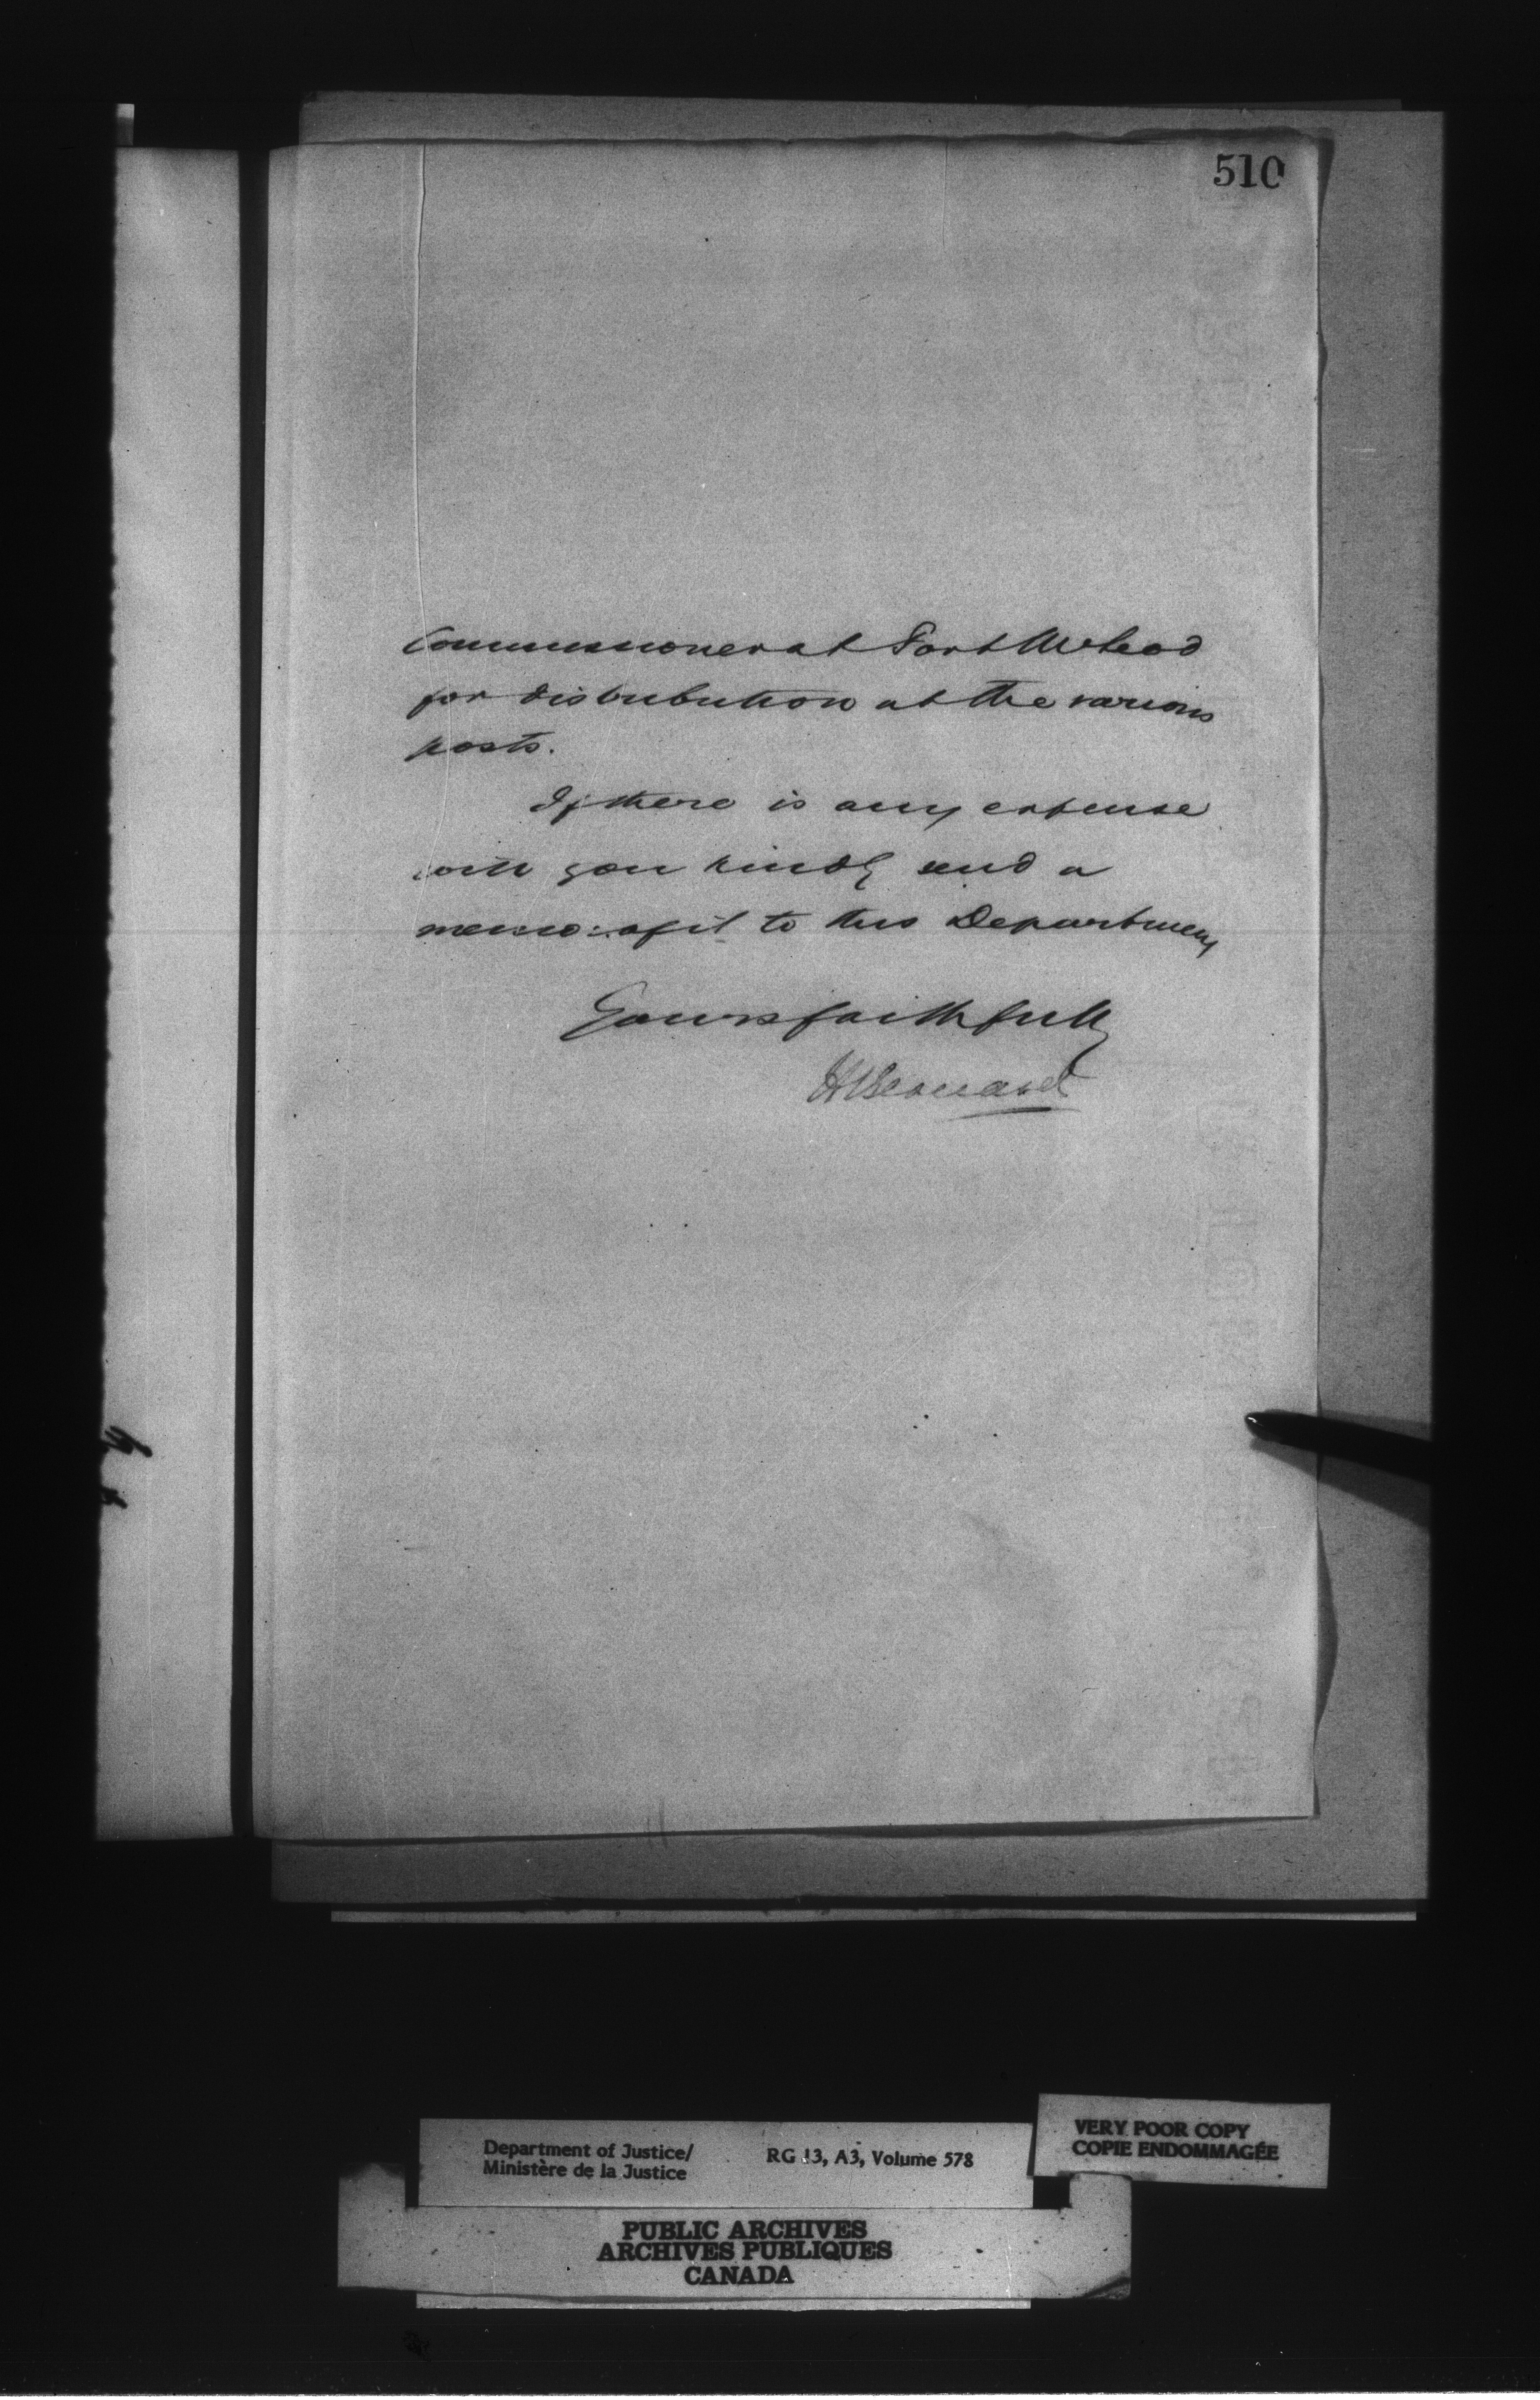 510
Commissioner at Fort McLeod
for distribution at the various
posts.
If there is any expense
will you kindly send a
memo: of it to this Department
Yours faithfully
H Bernard
Department of Justice/
Ministère de la Justice
RG 13, A3, Volume 578
VERY POOR COPY
COPIE ENDOMMAGÉE
PUBLIC ARCHIVES
ARCHIVES PUBLIQUES
CANADA